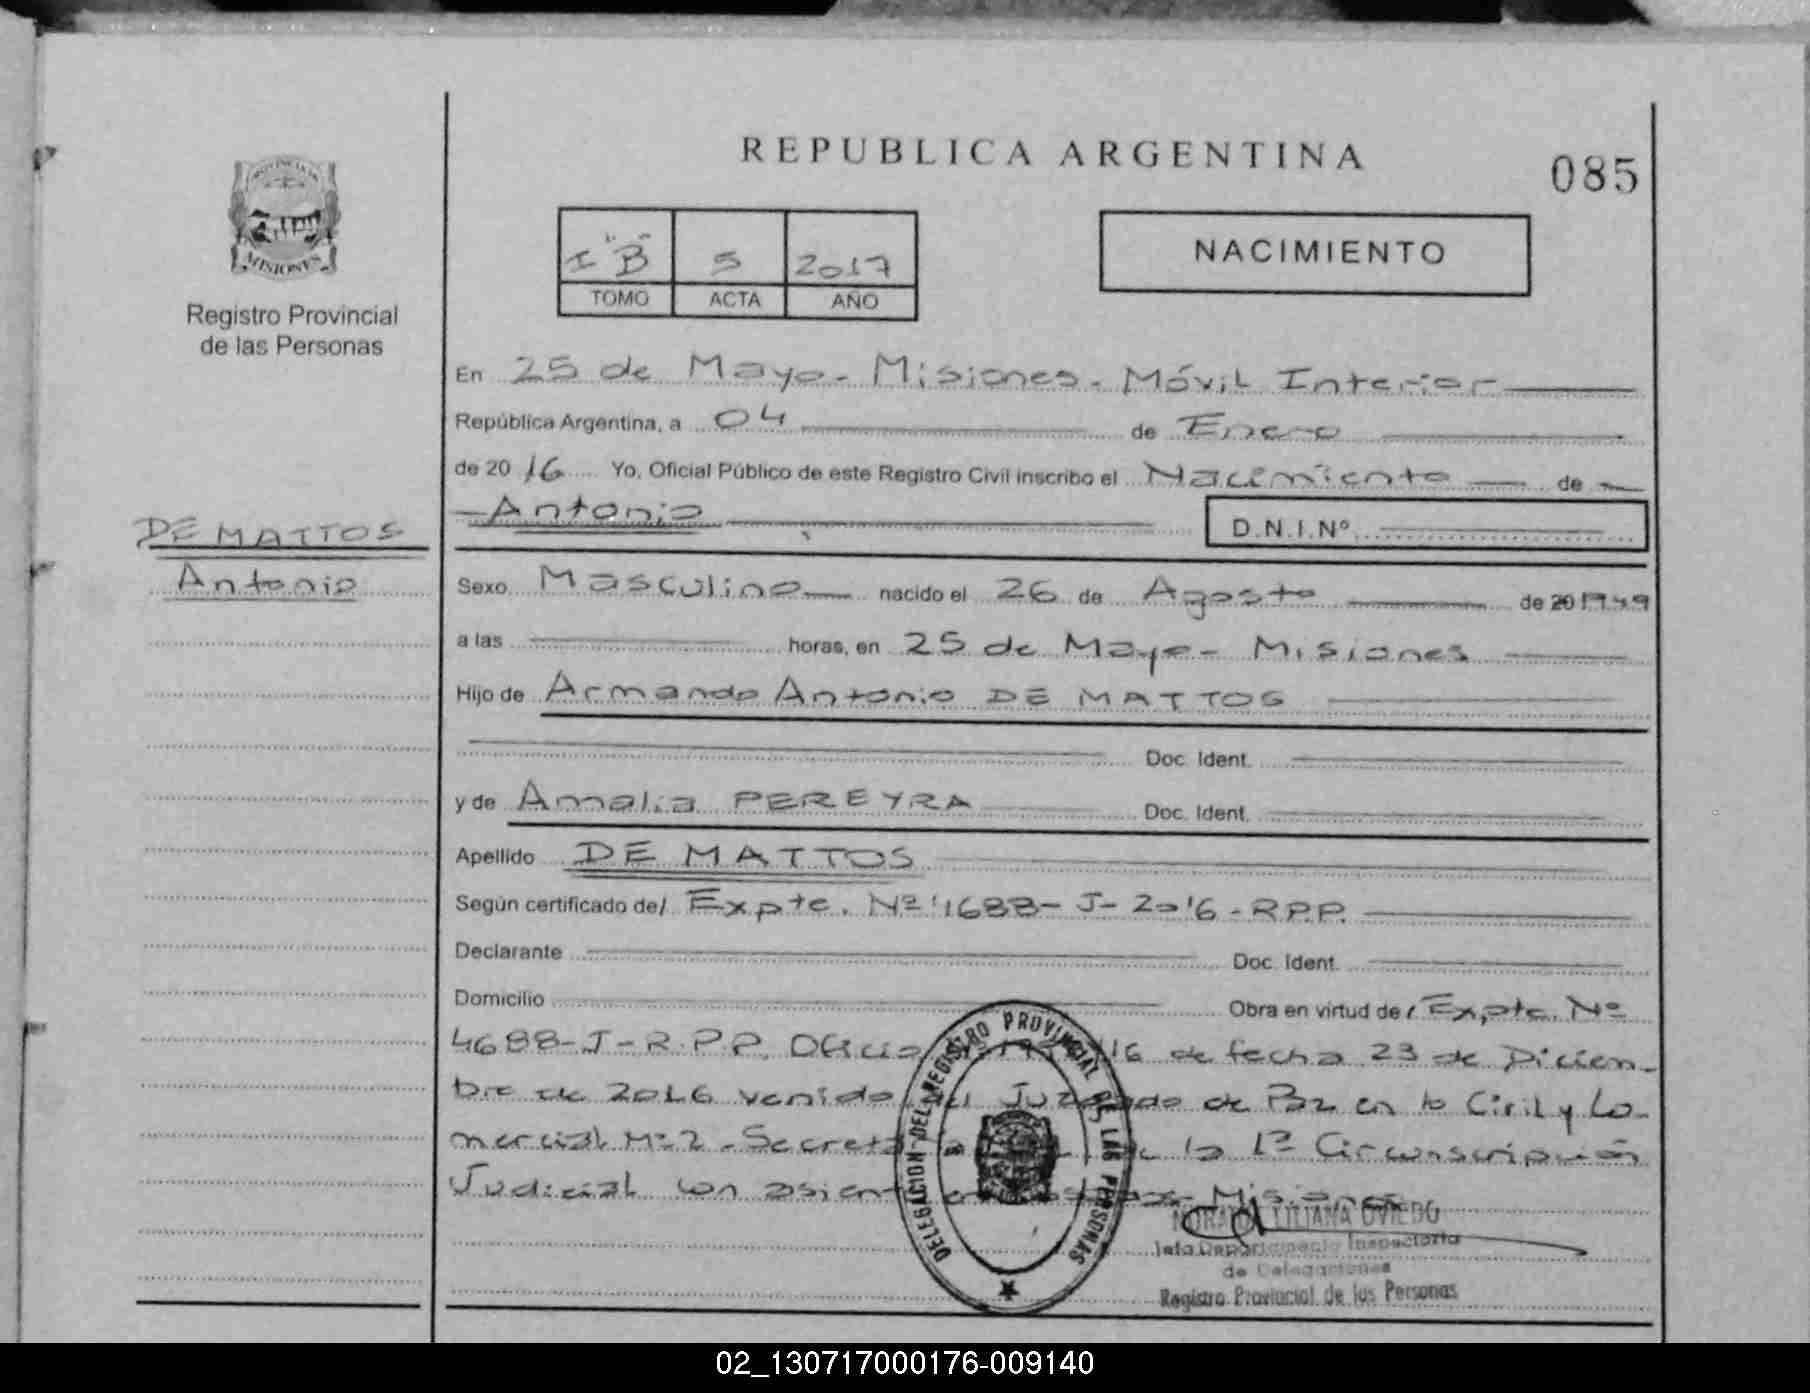 REPUBLICA ARGENTINA
085
PROVINCIA DE
MISIONES
Registro Provincial
de las Personas
I "B" 5 2017
TOMO ACTA AÑO
NACIMIENTO
En 25 de Mayo - Misiones - Móvil Interior
República Argentina, a 04 de Enero
de 2016 Yo, Oficial Público de este Registro Civil inscribo el Nacimiento de
Antonio D.N.I.Nº
DE MATTOS
Antonio
Sexo Masculino nacido el 26 de Agosto de 20 1949
a las horas, en 25 de Mayo - Misiones
Hijo de Armando Antonio DE MATTOS
Doc. Ident.
y de Amalia PEREYRA Doc. Ident.
Apellido DE MATTOS
Según certificado de/ Expte. Nº 4688-J-2016-R.P.P.
Declarante Doc. Ident.
Domicilio Obra en virtud de/ Expte. Nº
4688-J-R.P.P. Oficio 16 de fecha 23 de Diciem-
bre de 2016 venido del Juzgado de Paz en lo Civil y Co-
mercial Nº 2 - de la 1ª Circunscripción
Judicial con asiento en Posadas - Misiones
DELEGACION DEL REGISTRO PROVINCIAL DE LAS PERSONAS
LILIANA OVIEDO
Jefa Departamento Inspectoría
de Delegaciones
Registro Provincial de las Personas
02_130717000176-009140